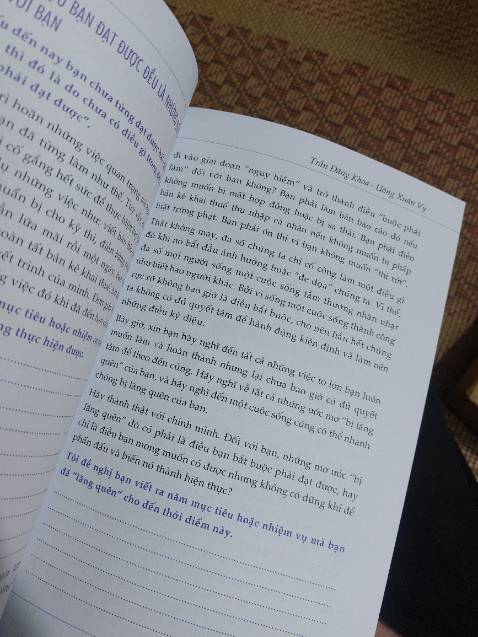 O BẠN ĐẠT ĐƯỢC ĐỀU LÀ NHỮNG
TÔI BẠN
đến nay bạn chưa từng đạt được
thì đó là do chưa có điều gì
phải đạt được”.
rì hoãn những việc quan trọng
bạn đã từng làm như thế.
cố gắng hết sức để thực hiện
những việc như: viết bản
chuẩn bị cho kỳ thi,
lần lữa mãi rồi một ngày
hoàn tất bản kê khai thuế
trình của mình. Đơn giản
việc đó khi đã đến
mục tiêu hoặc nhiệm
thực hiện được.
Trần Đăng Khoa - Uông Xuân Vy
đi vào giai đoạn “nguy hiểm” và trở thành điều “buộc phải
làm” đối với bạn không? Bạn phải làm bản báo cáo đó nếu
không muốn bị mất hợp đồng hoặc bị sa thải. Bạn phải điền
bản kê khai thuế thu nhập cá nhân nếu không muốn bị pháp
luật trừng phạt. Bạn phải ôn thi vì bạn không muốn “thi rớt”.
Thật không may, đa số chúng ta chỉ cố gắng làm một điều gì
đó khi nó bắt đầu ảnh hưởng hoặc “đe dọa” chúng ta. Vì thế,
đa số mọi người sống một cuộc sống tầm thường nhàn nhạt
như biết bao người khác. Bởi vì sống một cuộc sống thành công
rực rỡ không bao giờ là điều bắt buộc, cho nên hầu hết chúng
ta không có đủ quyết tâm để hành động kiên định và làm nên
những điều kỳ diệu.
Bây giờ, xin bạn hãy nghĩ đến tất cả những việc to lớn bạn luôn
muốn làm và hoàn thành nhưng lại chưa bao giờ có đủ quyết
tâm để theo đến cùng. Hãy nghĩ về tất cả những ước mơ “bị lãng
quên” của bạn, và hãy nghĩ đến một cuộc sống cũng có thể nhanh
chóng bị lãng quên của bạn.
Hãy thành thật với chính mình. Đối với bạn, những mơ ước “bị
lãng quên” đó có phải là điều bạn bắt buộc phải đạt được, hay
chỉ là điều bạn mong muốn có được nhưng không có dũng khí để
phấn đấu và biến nó thành hiện thực?
Tôi đề nghị bạn viết ra năm mục tiêu hoặc nhiệm vụ mà bạn
đã “lãng quên” cho đến thời điểm này.